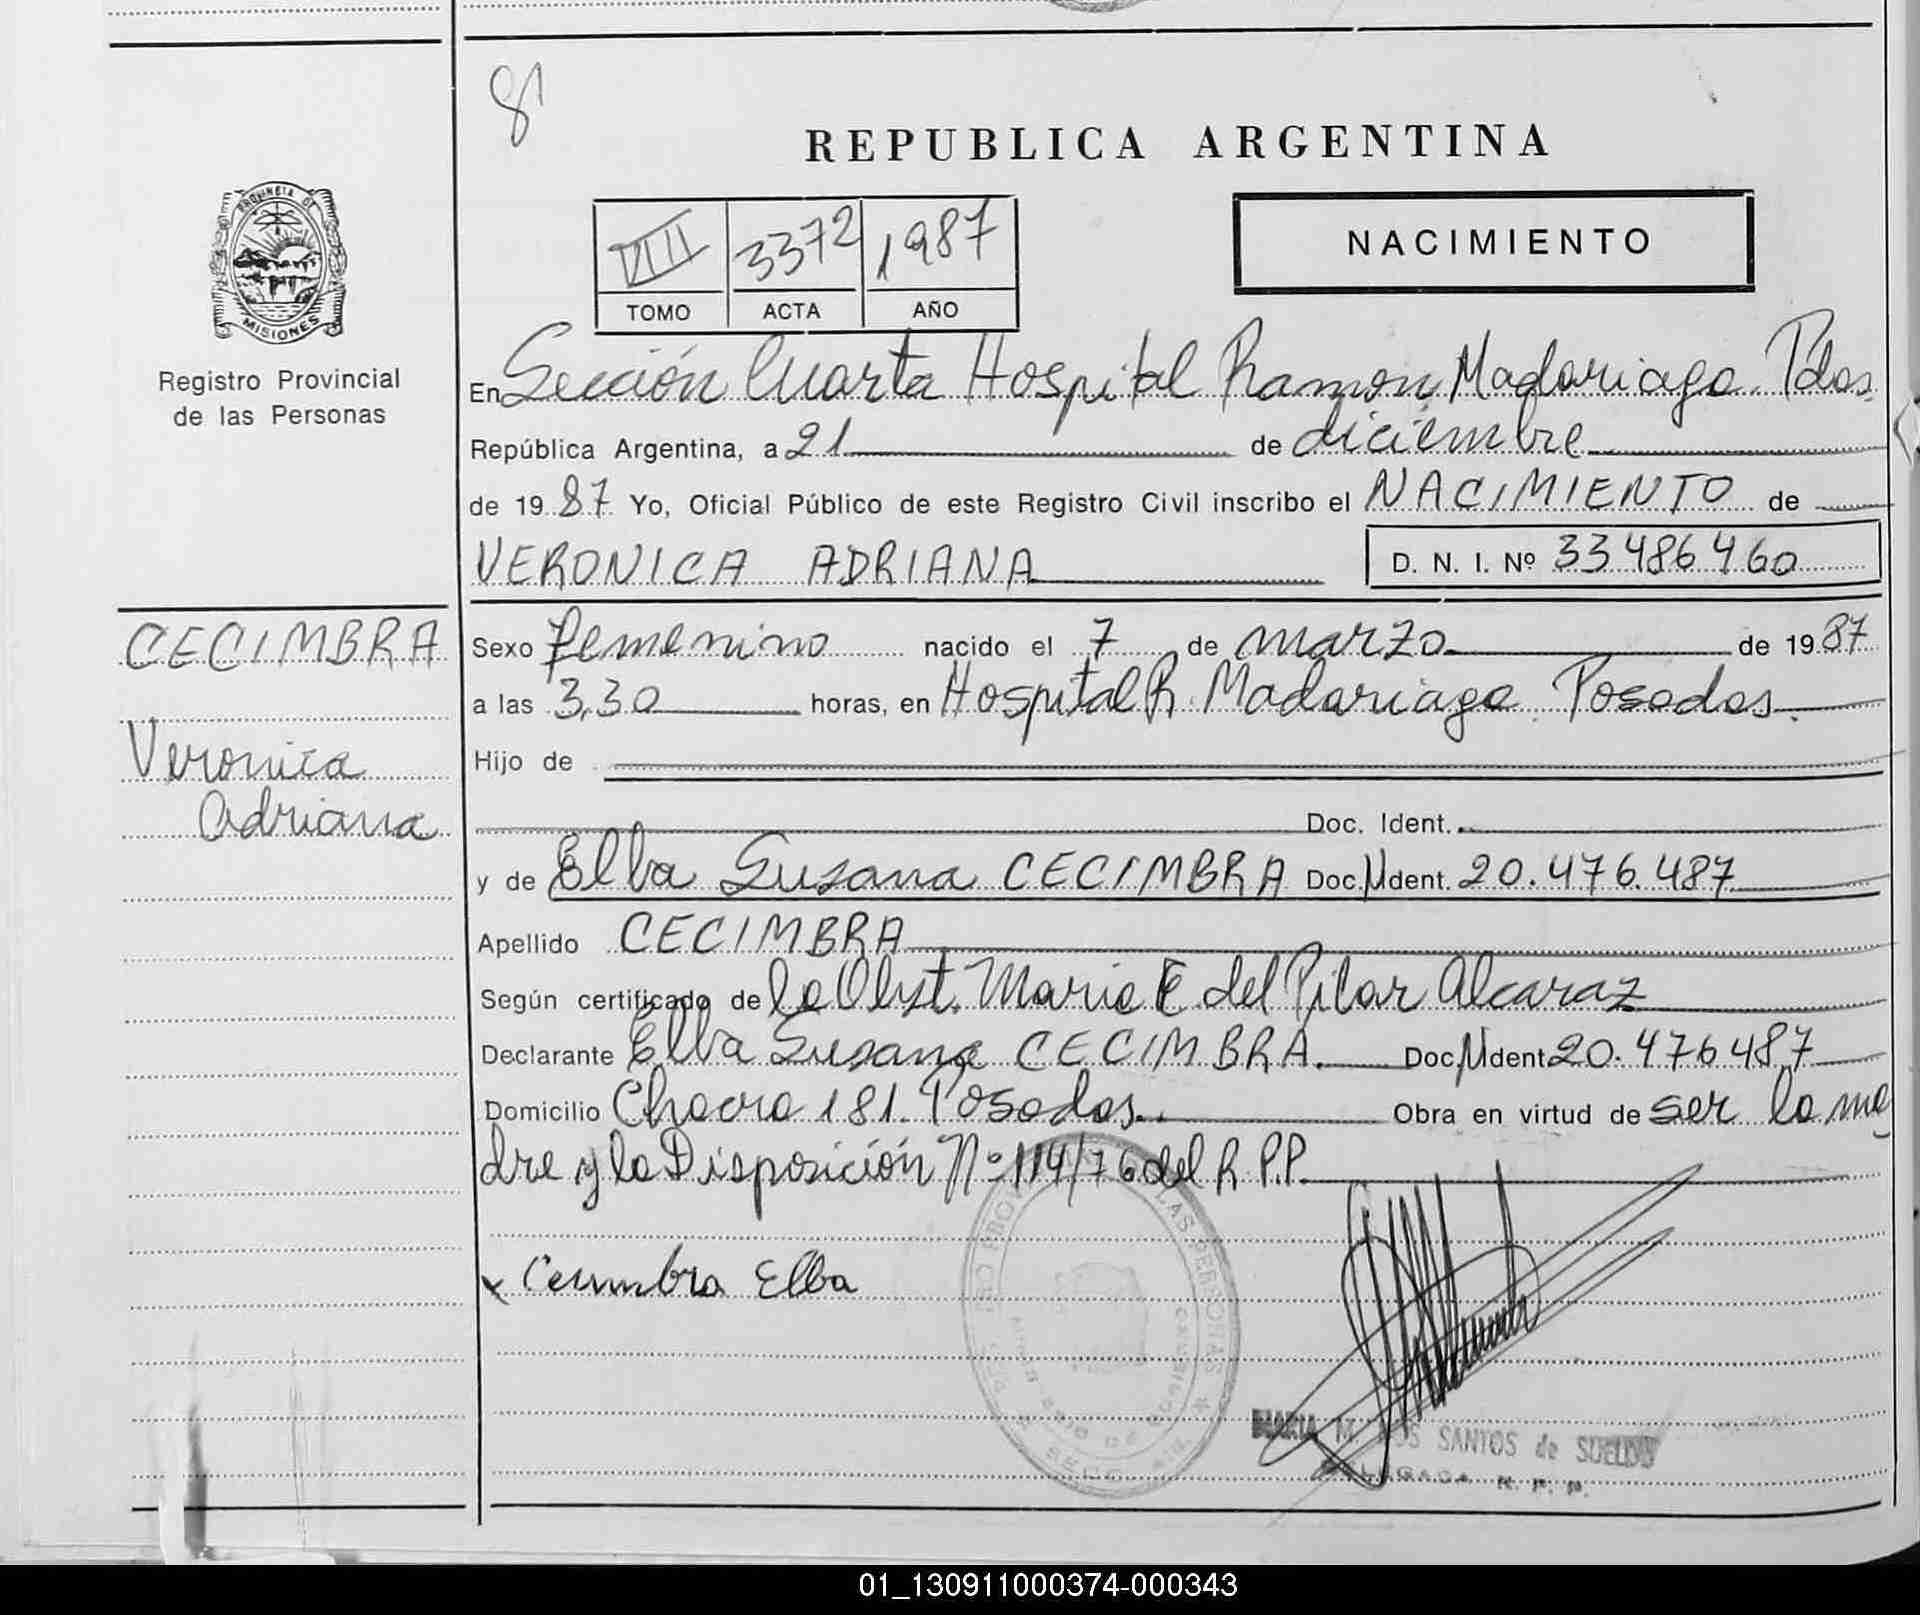 8
REPUBLICA ARGENTINA
PROVINCIA DE
MISIONES
Registro Provincial
de las Personas
VIII 3372 1987
TOMO ACTA AÑO
NACIMIENTO
En Sección Cuarta Hospital Ramon Madariaga. Pdas.
República Argentina, a 21 de diciembre
de 1987 Yo, Oficial Público de este Registro Civil inscribo el NACIMIENTO de
VERONICA ADRIANA D. N. I. Nº 33486460
CECIMBRA
Veronica
Adriana
Sexo femenino nacido el 7 de marzo de 1987
a las 3,30 horas, en Hospital R. Madariaga. Posadas.
Hijo de
Doc. Ident.
y de Elba Susana CECIMBRA Doc. N Ident. 20.476.487
Apellido CECIMBRA
Según certificado de la Obst. Maria E del Pilar Alcaraz
Declarante Elba Susana CECIMBRA. Doc. N Ident 20.476487
Domicilio Chacra 181. Posadas. Obra en virtud de ser la ma
dre y la Disposición Nº 114/76 del R.P.P.
x Cecimbra Elba
LAS PERSONAS
MARIA M. DOS SANTOS de SUELDO
DELEGADA R. P. P.
01_130911000374-000343